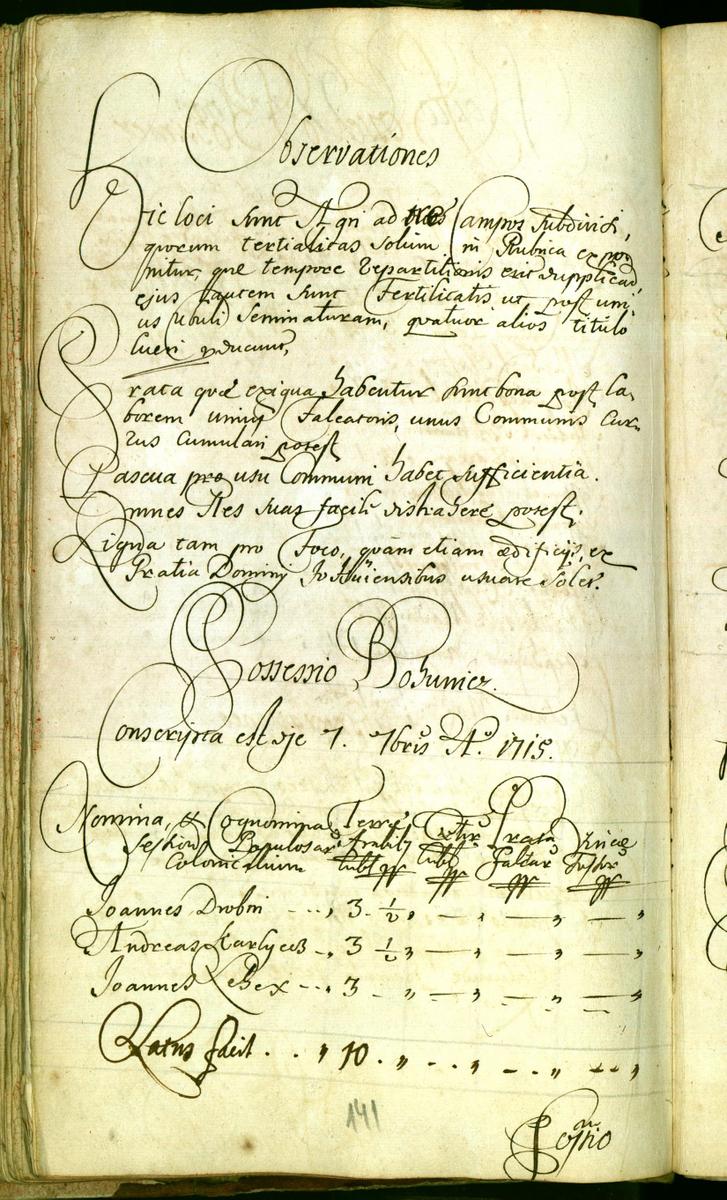 Observationes
Hic loci sunt Agri ad tres Campos subdivisi,
quorum tertialitas solum in Rubrica expo
nitur, quæ tempore repartitionis erit dupplicad,
ejus autem sunt Fertilitatis ut post uni-
us Cubuli seminaturam, quatuor alios titulo
lucri producunt,
Prata quæ exigua habentur sunt bona post la,
borem unius Falcatoris, unus Communis Cur-
rus Cumulari potest
Pascua pro usu Communi habet sufficientia.
Omnes Res suas facile distrahere potest;
Ligna tam pro Foco, quam etiam ædificijs, ex
Gratia Dominij usuare solet.
Possessio Bohunicz.
Conscripta est die 7. 7bris Ao. 1715.
Nomina, et Cognomina Terræ Prata Vineæ
Session Populosar Arabil Falcar Fossor
Colonicalium Cubl
Joannes Drobni - - -, 3 1/2 , — , — , — ,
Andreas - , 3 1/2 , — , — , — ,
Joannes - - , 3 - , — , — , — ,
Latus facit . . , 10 . , - . . , - . . , - - ,
141